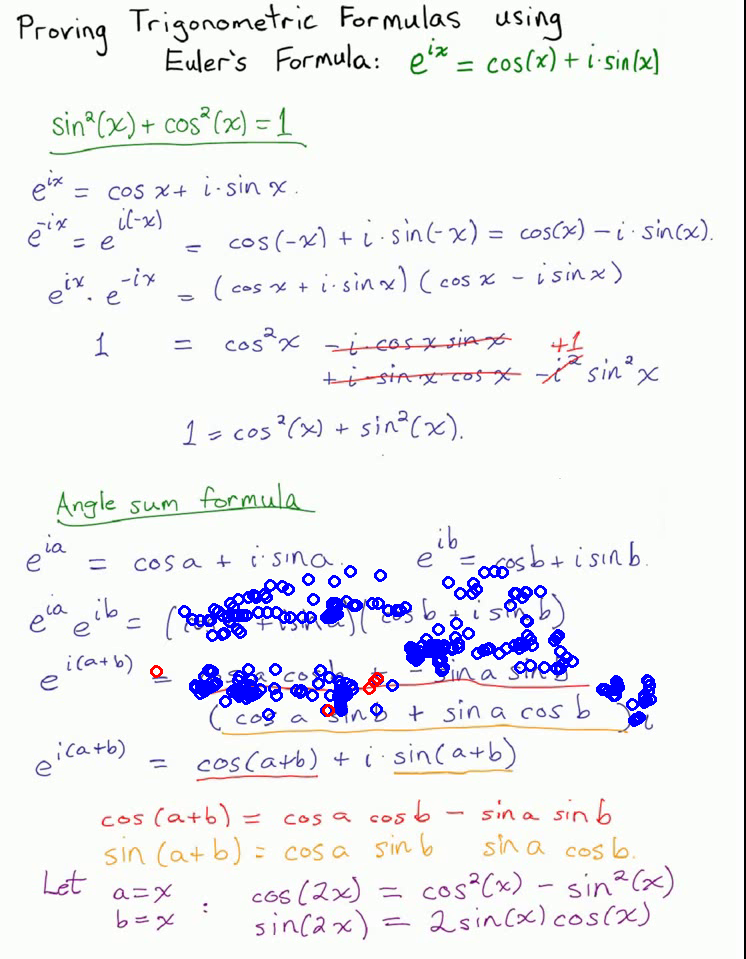 Proving Trigonometric Formulas using
Euler's Formula: e^{ix} = cos(x) + i·sin(x)
sin²(x) + cos²(x) = 1
e^{ix} = cos x + i·sin x.
e^{-ix} = e^{i(-x)} = cos(-x) + i·sin(-x) = cos(x) - i·sin(x).
e^{ix}·e^{-ix} = (cos x + i·sin x)(cos x - i sin x)
1 = cos²x - i·cos x sin x +1
+ i·sin x cos x - i² sin²x
1 = cos²(x) + sin²(x).
Angle sum formula
e^{ia} = cos a + i·sin a. e^{ib} = cos b + i sin b.
e^{ia} e^{ib} = ( + )( b + i sin b)
e^{i(a+b)} = - sin a
(cos a sin b + sin a cos b)
e^{i(a+b)} = cos(a+b) + i·sin(a+b)
cos(a+b) = cos a cos b - sin a sin b
sin(a+b) = cos a sin b sin a cos b.
Let a=x : cos(2x) = cos²(x) - sin²(x)
b=x sin(2x) = 2 sin(x) cos(x)